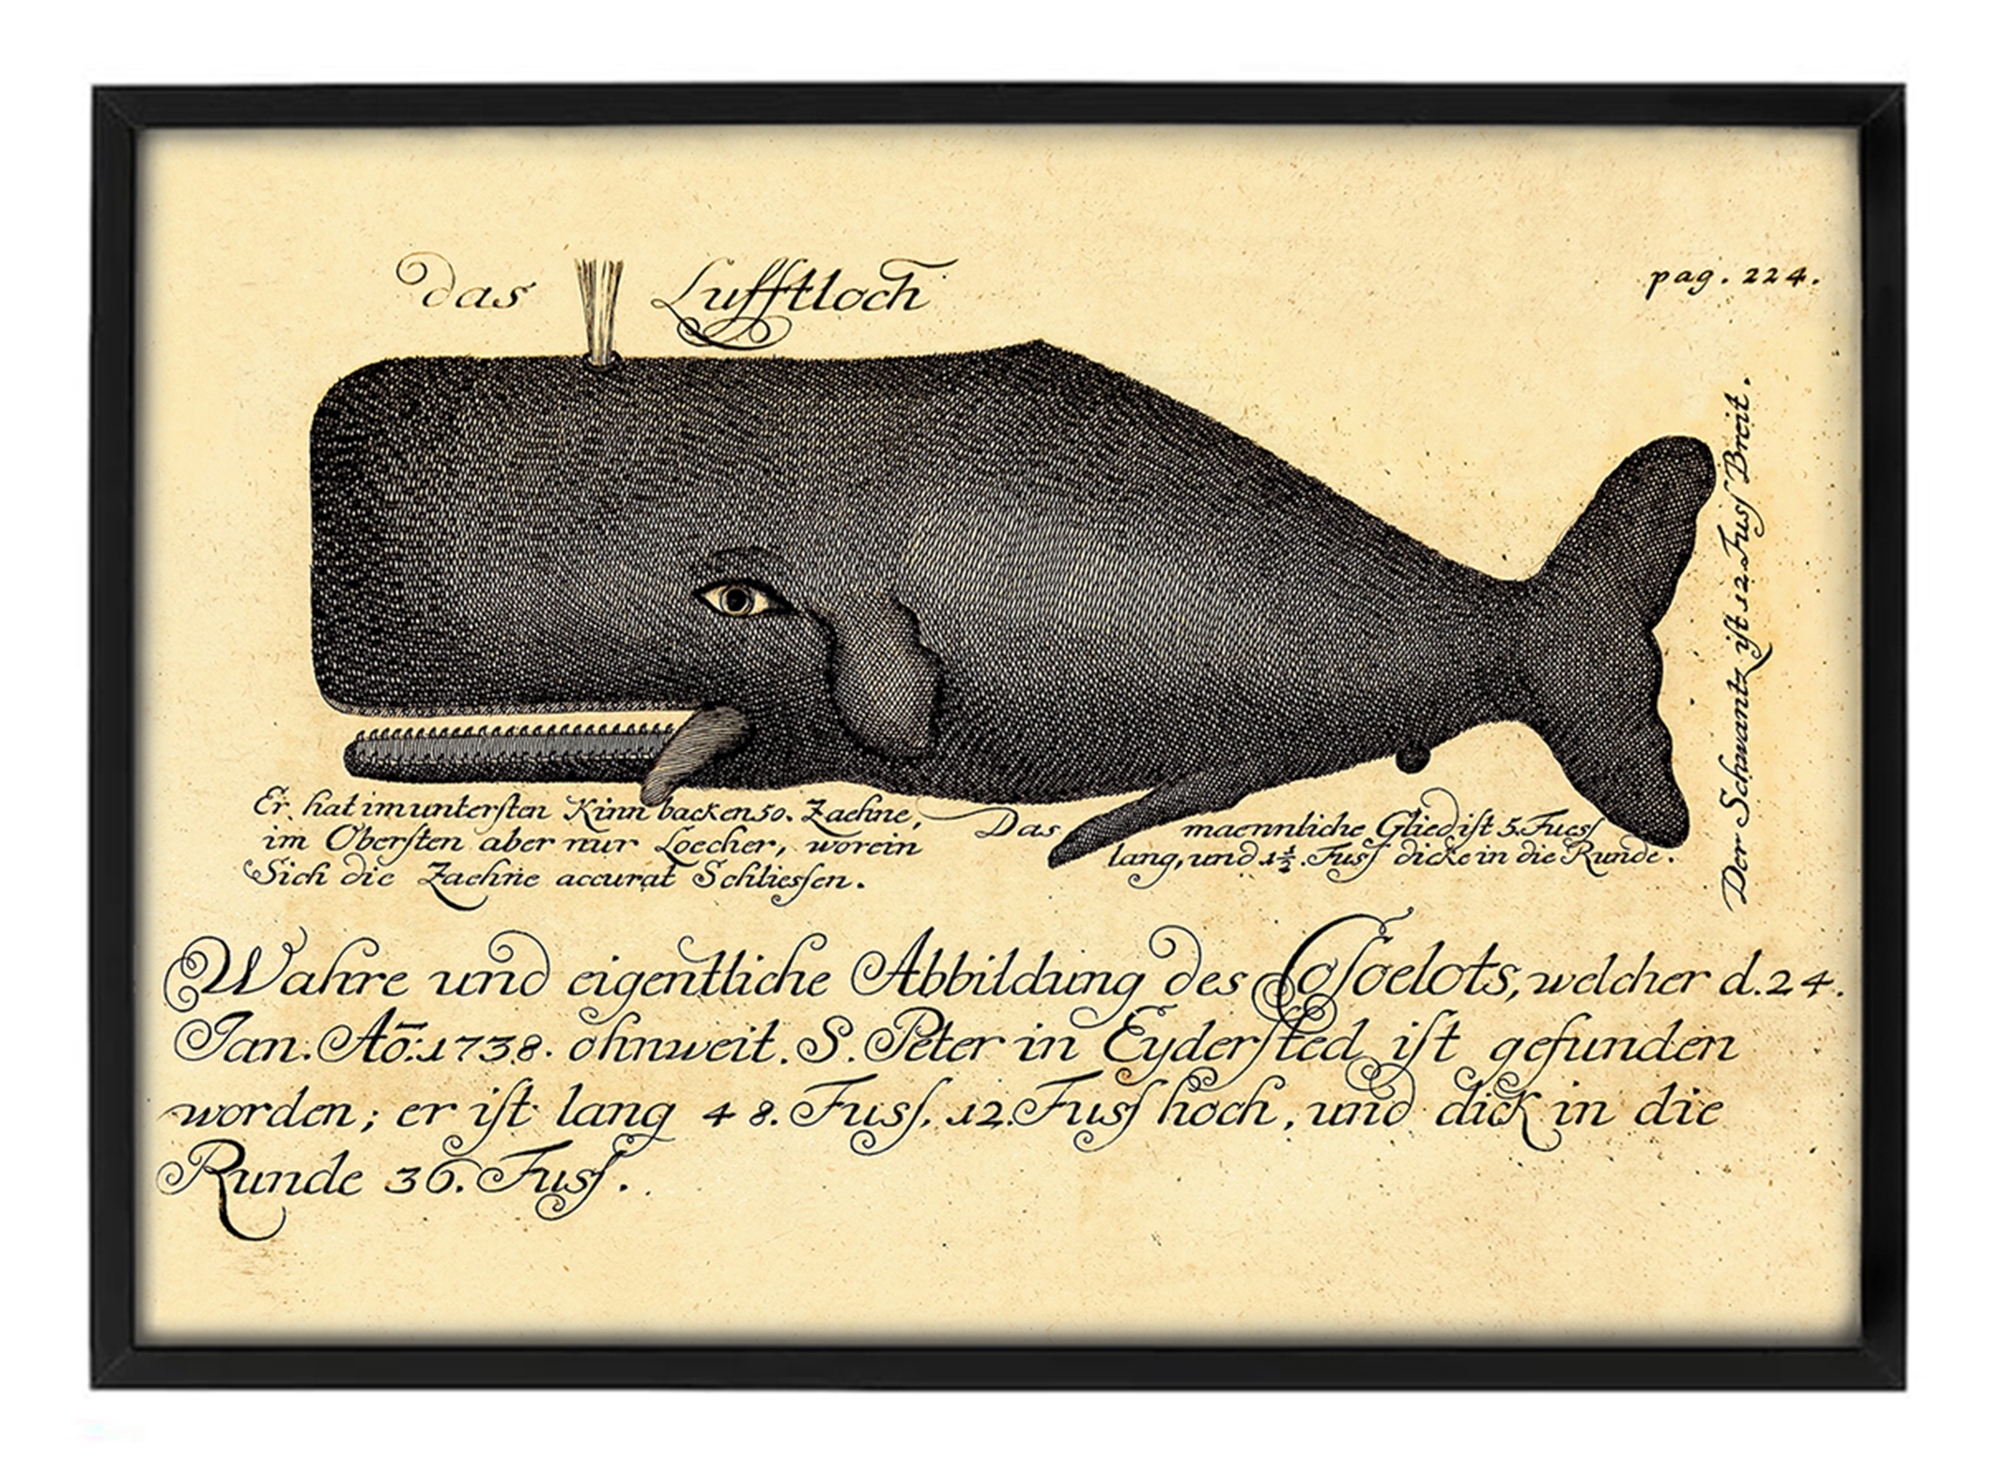 das Lufftloch
pag. 224.
Der Schwantz ist 12 Fuss Breit.
Er hat im untersten Kinn backen 50. Zaehne,
im Obersten aber nur Loecher, worein
Sich die Zaehne accurat Schliessen.
Das maennliche Glied ist 5. Fuess
lang, und 1½. Fuss dicke in die Runde.
Wahre und eigentliche Abbildung des Cosoelots, welcher d. 24.
Jan. Aō: 1738. ohnweit. S. Peter in Eydersted ist gefunden
worden; er ist lang 48. Fuss. 12. Fuss hoch, und dick in die
Runde 36. Fuss.